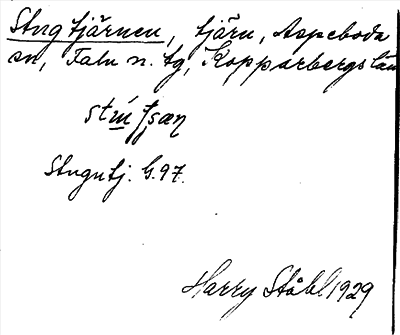 Stugtjärnen, tjärn, Aspeboda
sn, Falu n. tg, Kopparbergs län
Stugutj. G.97.
Harry Ståhl 1929